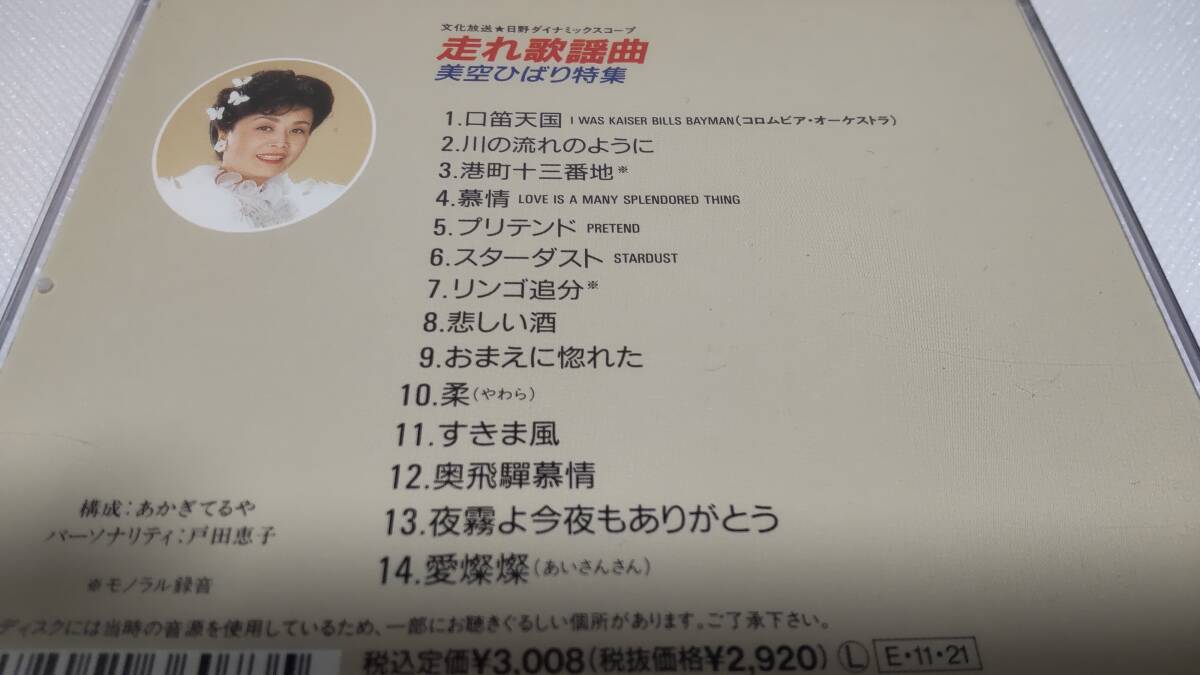 文化放送★日野ダイナミックスコープ
走れ歌謡曲
美空ひばり特集
1.口笛天国 I WAS KAISER BILLS BAYMAN(コロムビア・オーケストラ)
2.川の流れのように
3.港町十三番地※
4.慕情 LOVE IS A MANY SPLENDORED THING
5.プリテンド PRETEND
6.スターダスト STARDUST
7.リンゴ追分※
8.悲しい酒
9.おまえに惚れた
10.柔(やわら)
11.すきま風
12.奥飛驒慕情
13.夜霧よ今夜もありがとう
14.愛燦燦(あいさんさん)
構成:あかぎてるや
パーソナリティ:戸田恵子
※モノラル録音
ディスクには当時の音源を使用しているため、一部にお聴きぐるしい個所があります。ご了承下さい。
税込定価¥3,008(税抜価格¥2,920) Ⓛ E・11・21